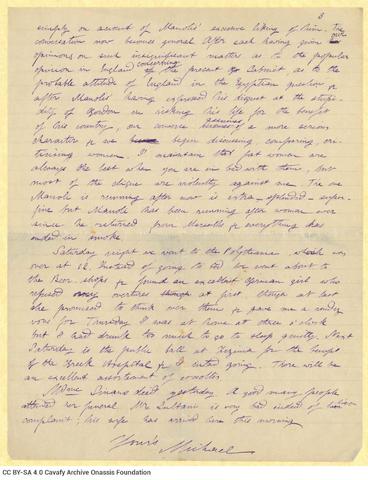 3.
simply on account of Manoli's excessive liking of him. The
conversation now becomes general. After each having given our
opinions on such insignificant matters as to the popular
opinion in England concerning the present Cabinet, as to the
probable attitude of England in the Egyptian question &
after Manoli's having expressed his disgust at the stupi-
dity of Gordon in risking his life for the benefit
of his country, our converse assumes a more serious
character & we begin discussing, comparing, cri-
ticising women. I maintain that fat women are
always the best when you are in bed with them, but
most of the clique are violently against me. The one
Manoli is running after now is extra-splendid-super-
fine but Manoli has been running after women ever
since he returned from Marseilles & everything has
ended in smoke.
Saturday night we went to the Politeama which was
over at 12. Instead of going to bed we went about to
the Beer-shops & found an excellent German girl who
refused overtures at first though at last
she promised to think over them & gave me a rendez
vous for Thursday. I was at home at three o'clock
but I had drunk too much to go to sleep quietly. Next
Saturday is the public ball at Zizinia for the benefit
of the Greek Hospital & I intend going. There will be
an excellent assortment of
Mdme Sinano died yesterday. A good many people
attended her funeral. Mr Zultani is very bad indeed of liver
complaint; his wife has arrived here this morning
Yours
Michael
CC BY-SA 4.0 Cavafy Archive Onassis Foundation